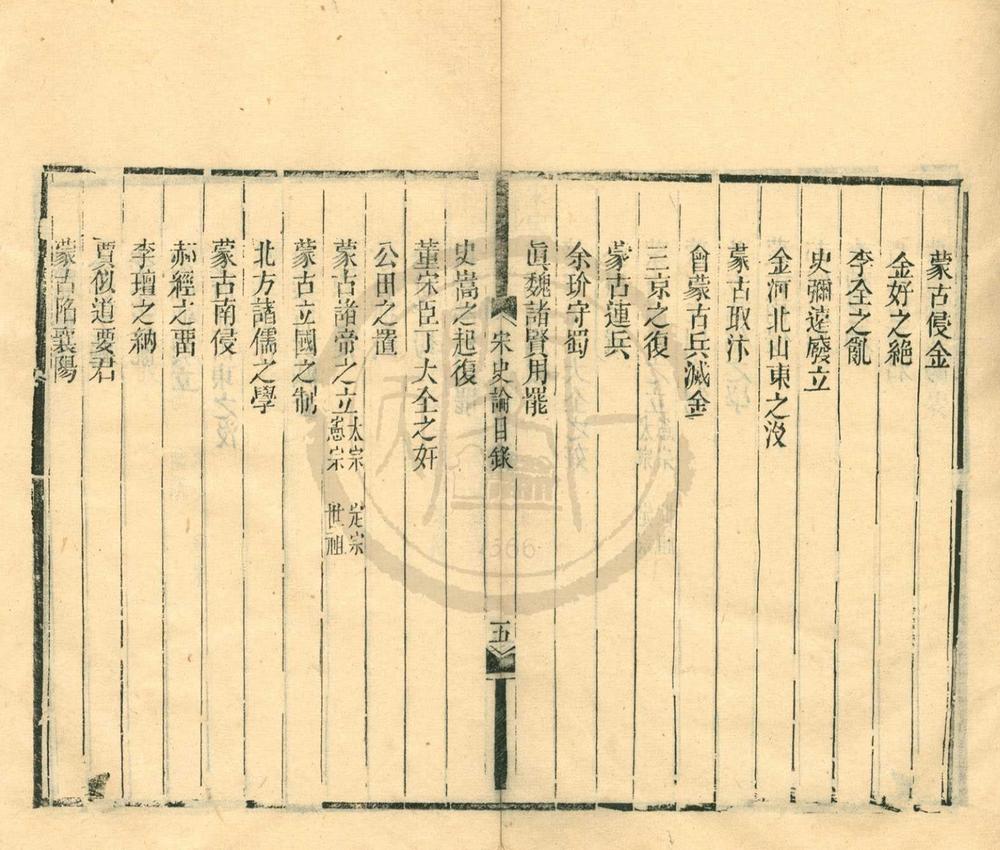 蒙古侵金
金好之絶
李全之亂
史彌遠廢立
金河北山東之沒
蒙古取汴
會蒙古兵滅金
三京之復
蒙古連兵
余玠守蜀
眞魏諸賢用罷
宋史論目錄
五
史嵩之起復
董宋臣丁大全之奸
公田之置
蒙古諸帝之立 太宗 定宗 憲宗 世祖
蒙古立國之制
北方諸儒之學
蒙古南侵
郝經之畱
李璮之納
賈似道要君
蒙古陷襄陽
1566